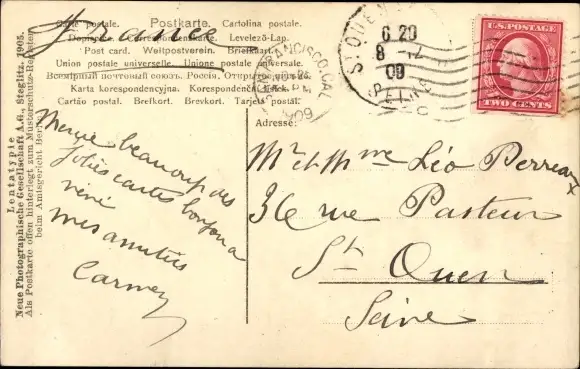 Carte postale. Postkarte. Cartolina postale.
France
Dopisnice. Correspondenzkarte. Levelező-Lap.
Post card. Weltpostverein. Briefkaart.
Union postale universelle. Unione postale universale.
Всемірный почтовый союзъ. Россія.
Karta korespondencyjna.
Cartão postal. Brefkort. Brevkort. Tarjeta postal.
Lentatypie
Neue Photographische Gesellschaft A.-G., Steglitz. 1905.
Als Postkarte offen hinterlegt zum Musterschutz-Register
beim Amtsgericht Berlin
FRANCISCO, CAL.
ST OUEN
6 20
8 - 12
09
SEINE
U.S. POSTAGE
TWO CENTS
Adresse:
Merçie beaucoup des
jolies cartes bonjour a
réné
mes amitiés
Carmen
Mr et Mme Léo Perreau
36 rue Pasteur
St Ouen
Seine